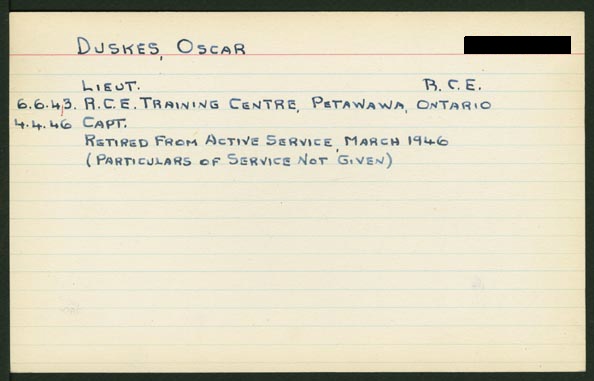 DUSKES, OSCAR
LIEUT. R.C.E.
6.6.43. R.C.E. TRAINING CENTRE, PETAWAWA, ONTARIO
4.4.46 CAPT.
RETIRED FROM ACTIVE SERVICE, MARCH 1946
(PARTICULARS OF SERVICE NOT GIVEN)